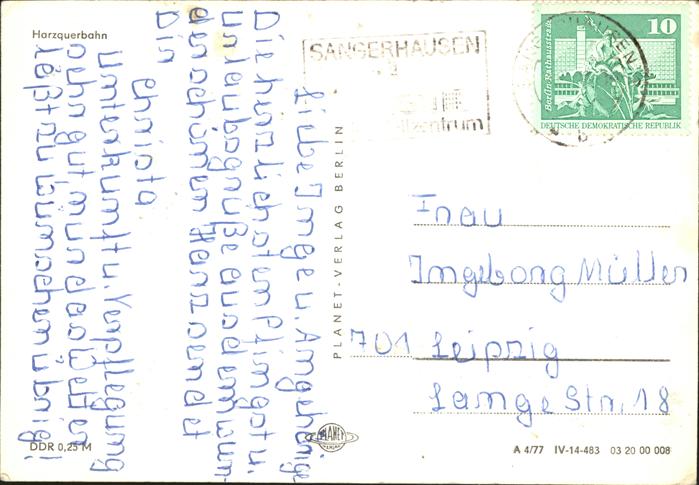 Harzquerbahn
Liebe Inge u. Angehörige
Die herzlichsten Pfingst u.
Urlaubsgrüße aus dem wun-
derschönen Harz sendet
Dir
Christa
Unterkunft u. Verpflegung
sehr gut nur das Wetter
läßt zu wünschen übrig!
DDR 0,25 M
PLANET-VERLAG BERLIN
SANGERHAUSEN
2
zentrum
Berlin, Rathausstraße
10
DEUTSCHE DEMOKRATISCHE REPUBLIK
Frau
Ingeborg Müller
701 Leipzig
Lange Str. 18
PLANET
VERLAG
A 4/77 IV-14-483 03 20 00 008